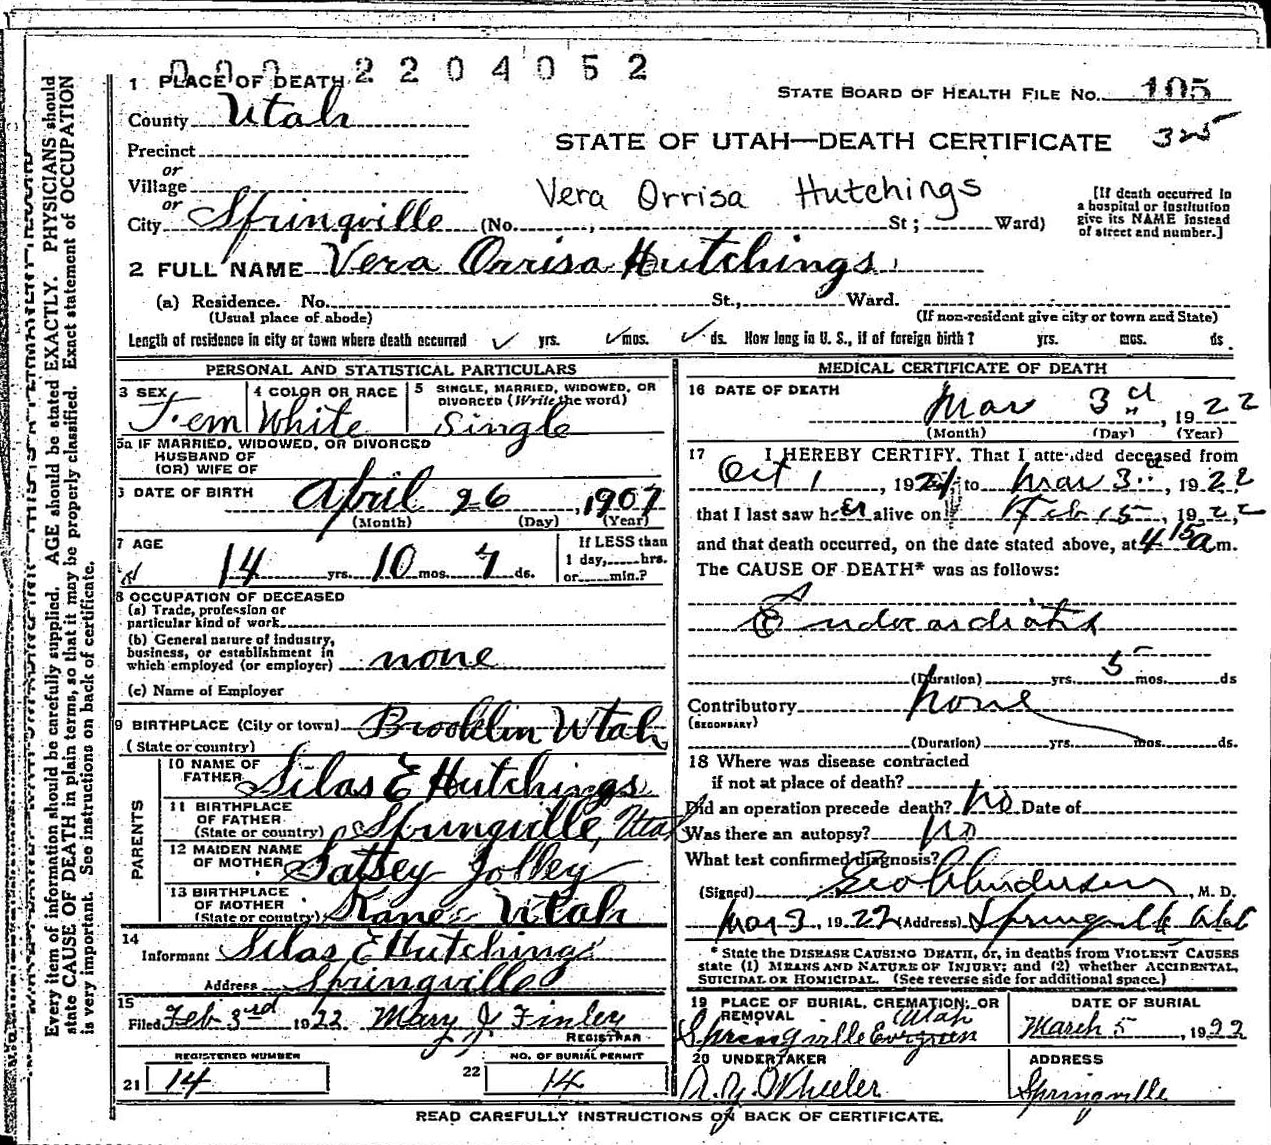 0 0 0 2 2 0 4 0 5 2
1 PLACE OF DEATH
STATE BOARD OF HEALTH FILE NO. 105
County Utah
STATE OF UTAH—DEATH CERTIFICATE 325
Precinct
or
Village
Vera Orrisa Hutchings
[If death occurred in a hospital or institution give its NAME instead of street and number.]
or
City Springville (No. , St; Ward)
2 FULL NAME Vera Orrisa Hutchings
(a) Residence. No. St., Ward.
(Usual place of abode) (If non-resident give city or town and State)
Length of residence in city or town where death occurred ✓ yrs. ✓ mos. ✓ ds. How long in U. S., if of foreign birth? yrs. mos. ds.
PERSONAL AND STATISTICAL PARTICULARS
3 SEX Fem
4 COLOR OR RACE White
5 SINGLE, MARRIED, WIDOWED, OR DIVORCED (Write the word) Single
5a IF MARRIED, WIDOWED, OR DIVORCED
HUSBAND OF
(OR) WIFE OF
DATE OF BIRTH April 26, 1907
(Month) (Day) (Year)
7 AGE 14 yrs. 10 mos. 7 ds.
If LESS than 1 day, hrs. or min.?
8 OCCUPATION OF DECEASED
(a) Trade, profession or
particular kind of work
(b) General nature of Industry,
business, or establishment in
which employed (or employer) none
(c) Name of Employer
9 BIRTHPLACE (City or town) Brooklin Utah
(State or country)
PARENTS
10 NAME OF FATHER Silas E Hutchings
11 BIRTHPLACE OF FATHER (State or country) Springville, Utah
12 MAIDEN NAME OF MOTHER Jolley
13 BIRTHPLACE OF MOTHER (State or country) Kane Utah
14 Informant Silas E Hutchings
Address Springville
15 Filed Feb 3rd 1922 Mary J Finley
REGISTRAR
REGISTERED NUMBER
21 14
NO. OF BURIAL PERMIT
22 14
MEDICAL CERTIFICATE OF DEATH
16 DATE OF DEATH
Mar 3d, 1922
(Month) (Day) (Year)
17 I HEREBY CERTIFY, That I attended deceased from
Oct 1, 1921 to Mar 3, 1922
that I last saw her alive on Feb 15, 1922
and that death occurred, on the date stated above, at 4 15 a m.
The CAUSE OF DEATH* was as follows:
Endocarditis
(Duration) yrs. 5 mos. ds
Contributory none
(SECONDARY)
(Duration) yrs. mos. ds.
18 Where was disease contracted
if not at place of death?
Did an operation precede death? no Date of
Was there an autopsy? no
What test confirmed diagnosis?
(Signed) Geo Anderson, M. D.
Mar 3, 1922 (Address) Springville Utah
* State the DISEASE CAUSING DEATH, or, in deaths from VIOLENT CAUSES
state (1) MEANS AND NATURE OF INJURY; and (2) whether ACCIDENTAL,
SUICIDAL OR HOMICIDAL. (See reverse side for additional space.)
19 PLACE OF BURIAL, CREMATION, OR REMOVAL
Utah
Springville Evergreen
DATE OF BURIAL
March 5, 1922
20 UNDERTAKER
A. Y. Wheeler
ADDRESS
Springville
READ CAREFULLY INSTRUCTIONS ON BACK OF CERTIFICATE.
Every item of information should be carefully supplied. AGE should be stated EXACTLY. PHYSICIANS should
state CAUSE OF DEATH in plain terms, so that it may be properly classified. Exact statement of OCCUPATION
is very important. See instructions on back of certificate.